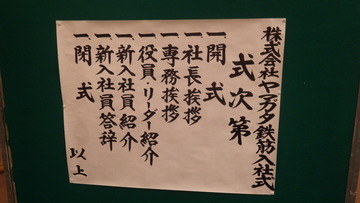 株式会社ヤマダタ鉄筋入社式
式次第
一開式
一社長挨拶
一専務挨拶
一役員・リーダー紹介
一新入社員紹介
一新入社員答辞
一閉式
以上